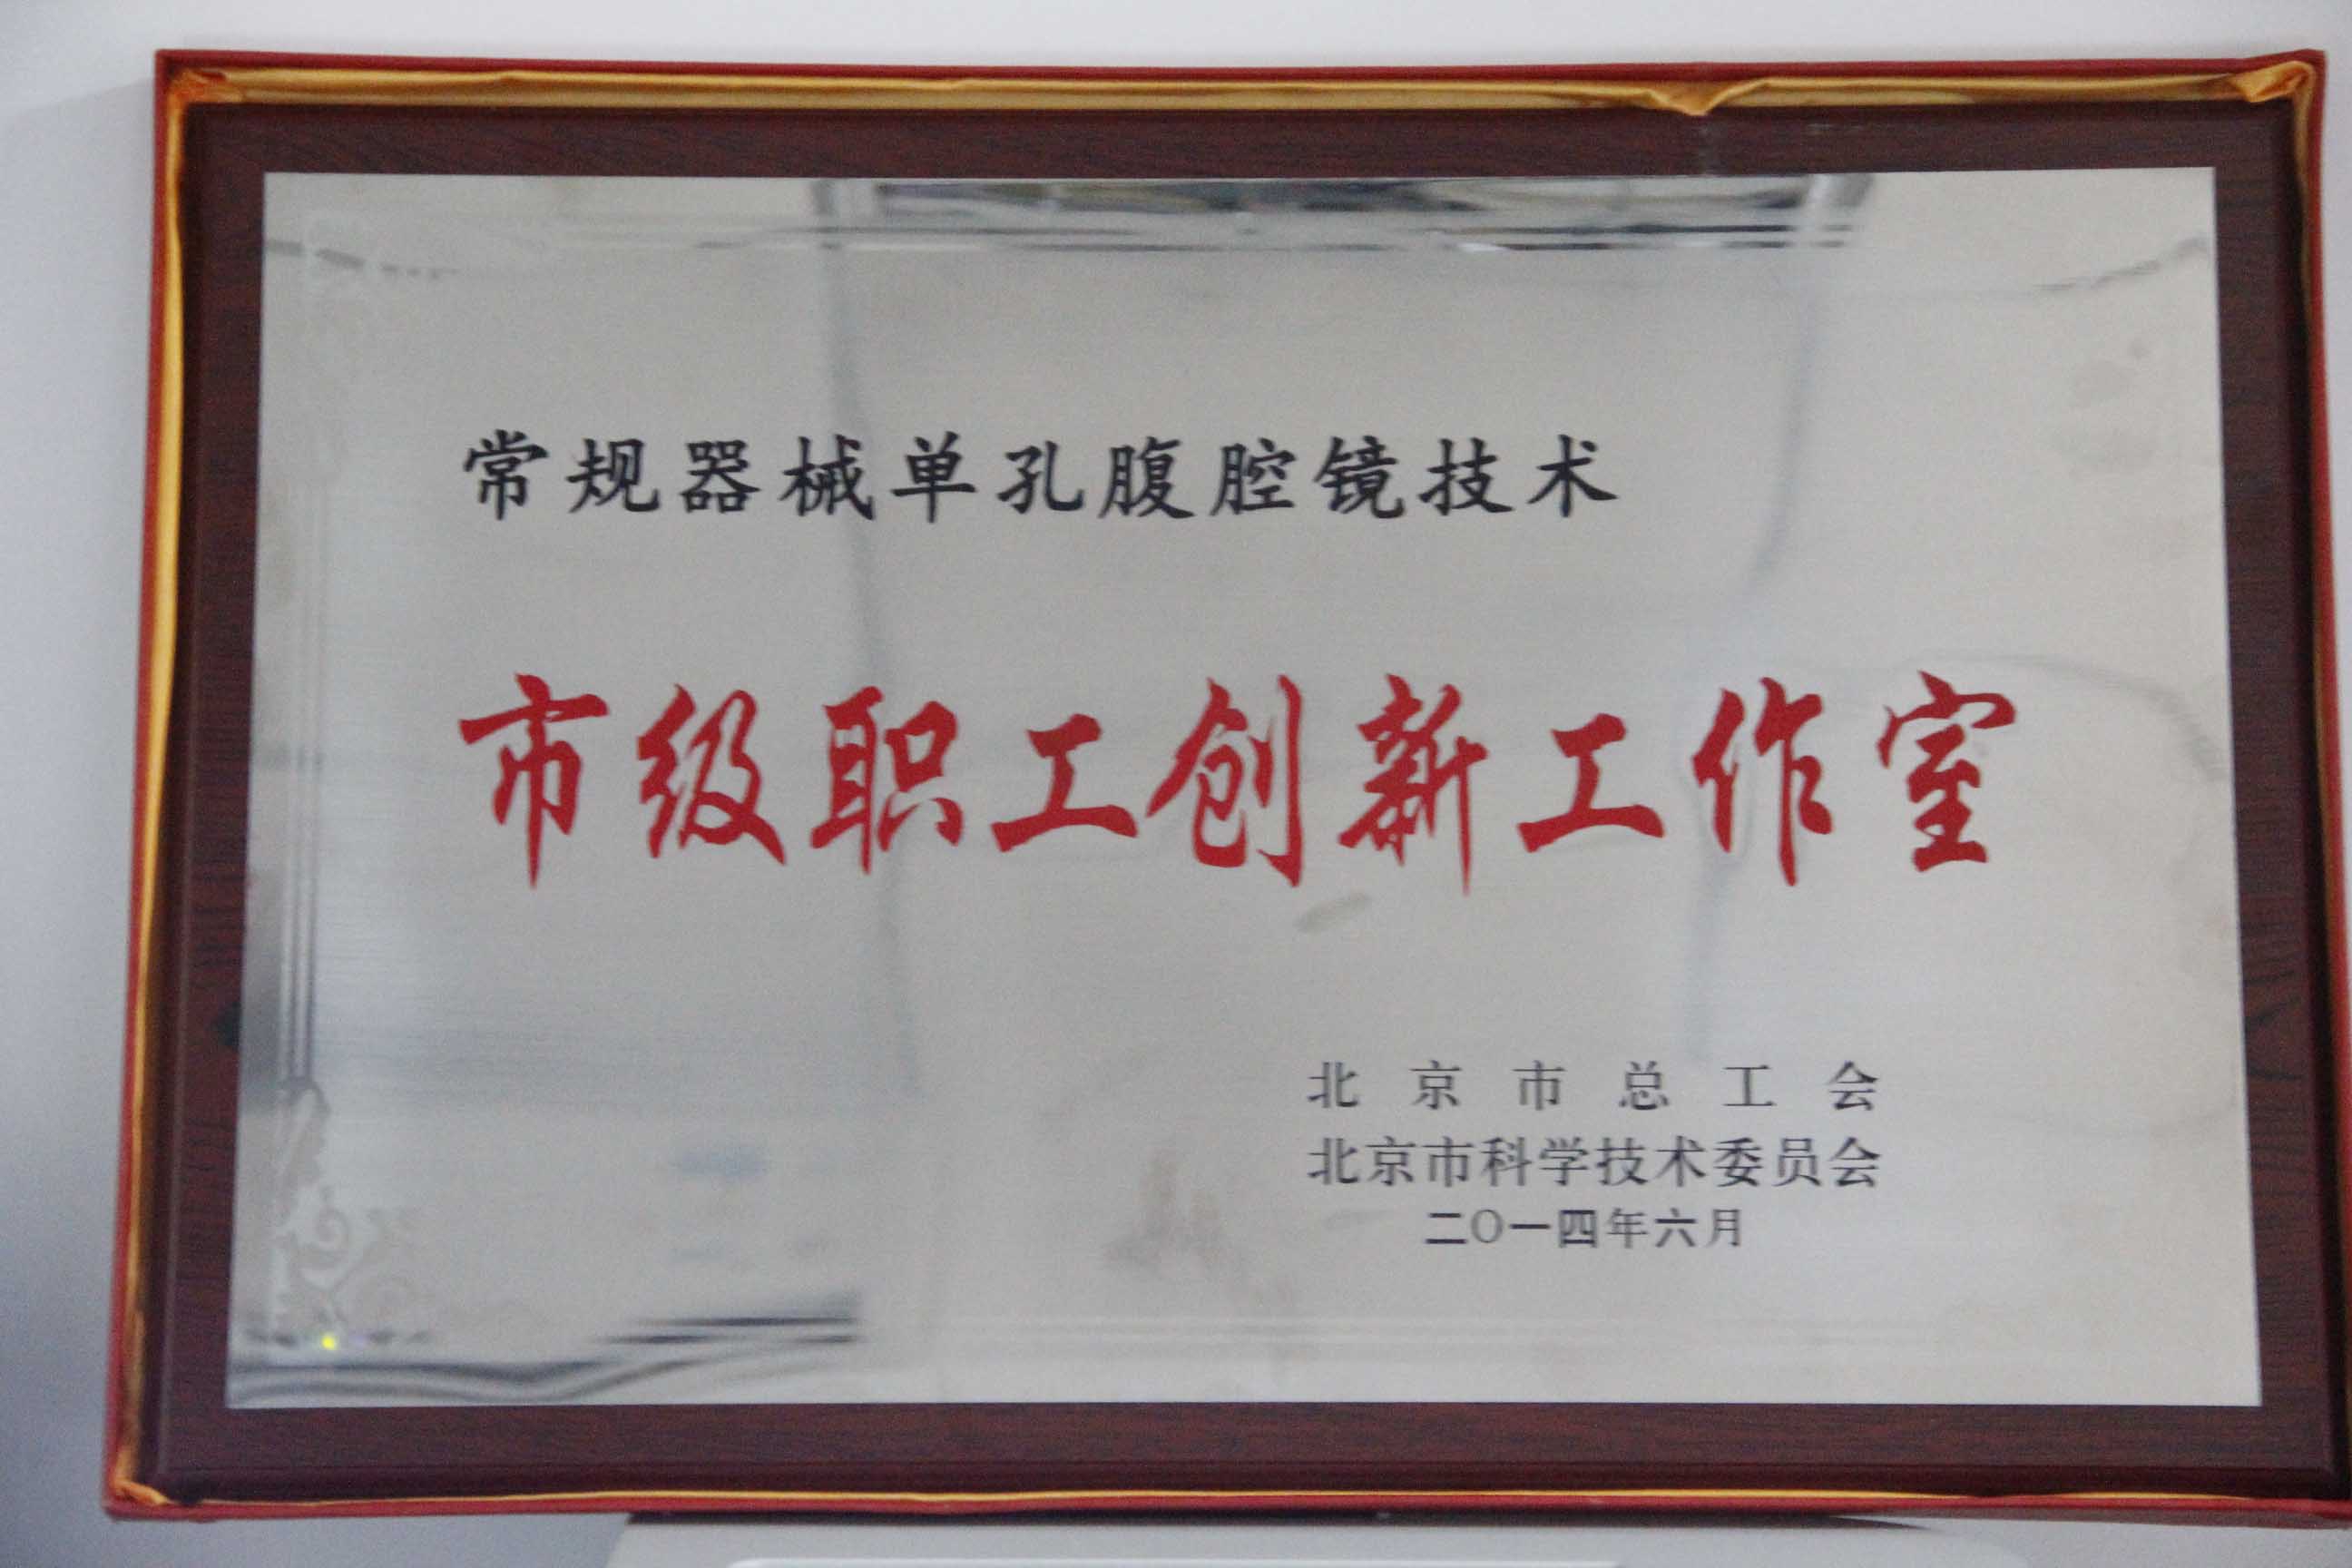 常规器械单孔腹腔镜技术
市级职工创新工作室
北京市总工会
北京市科学技术委员会
二〇一四年六月